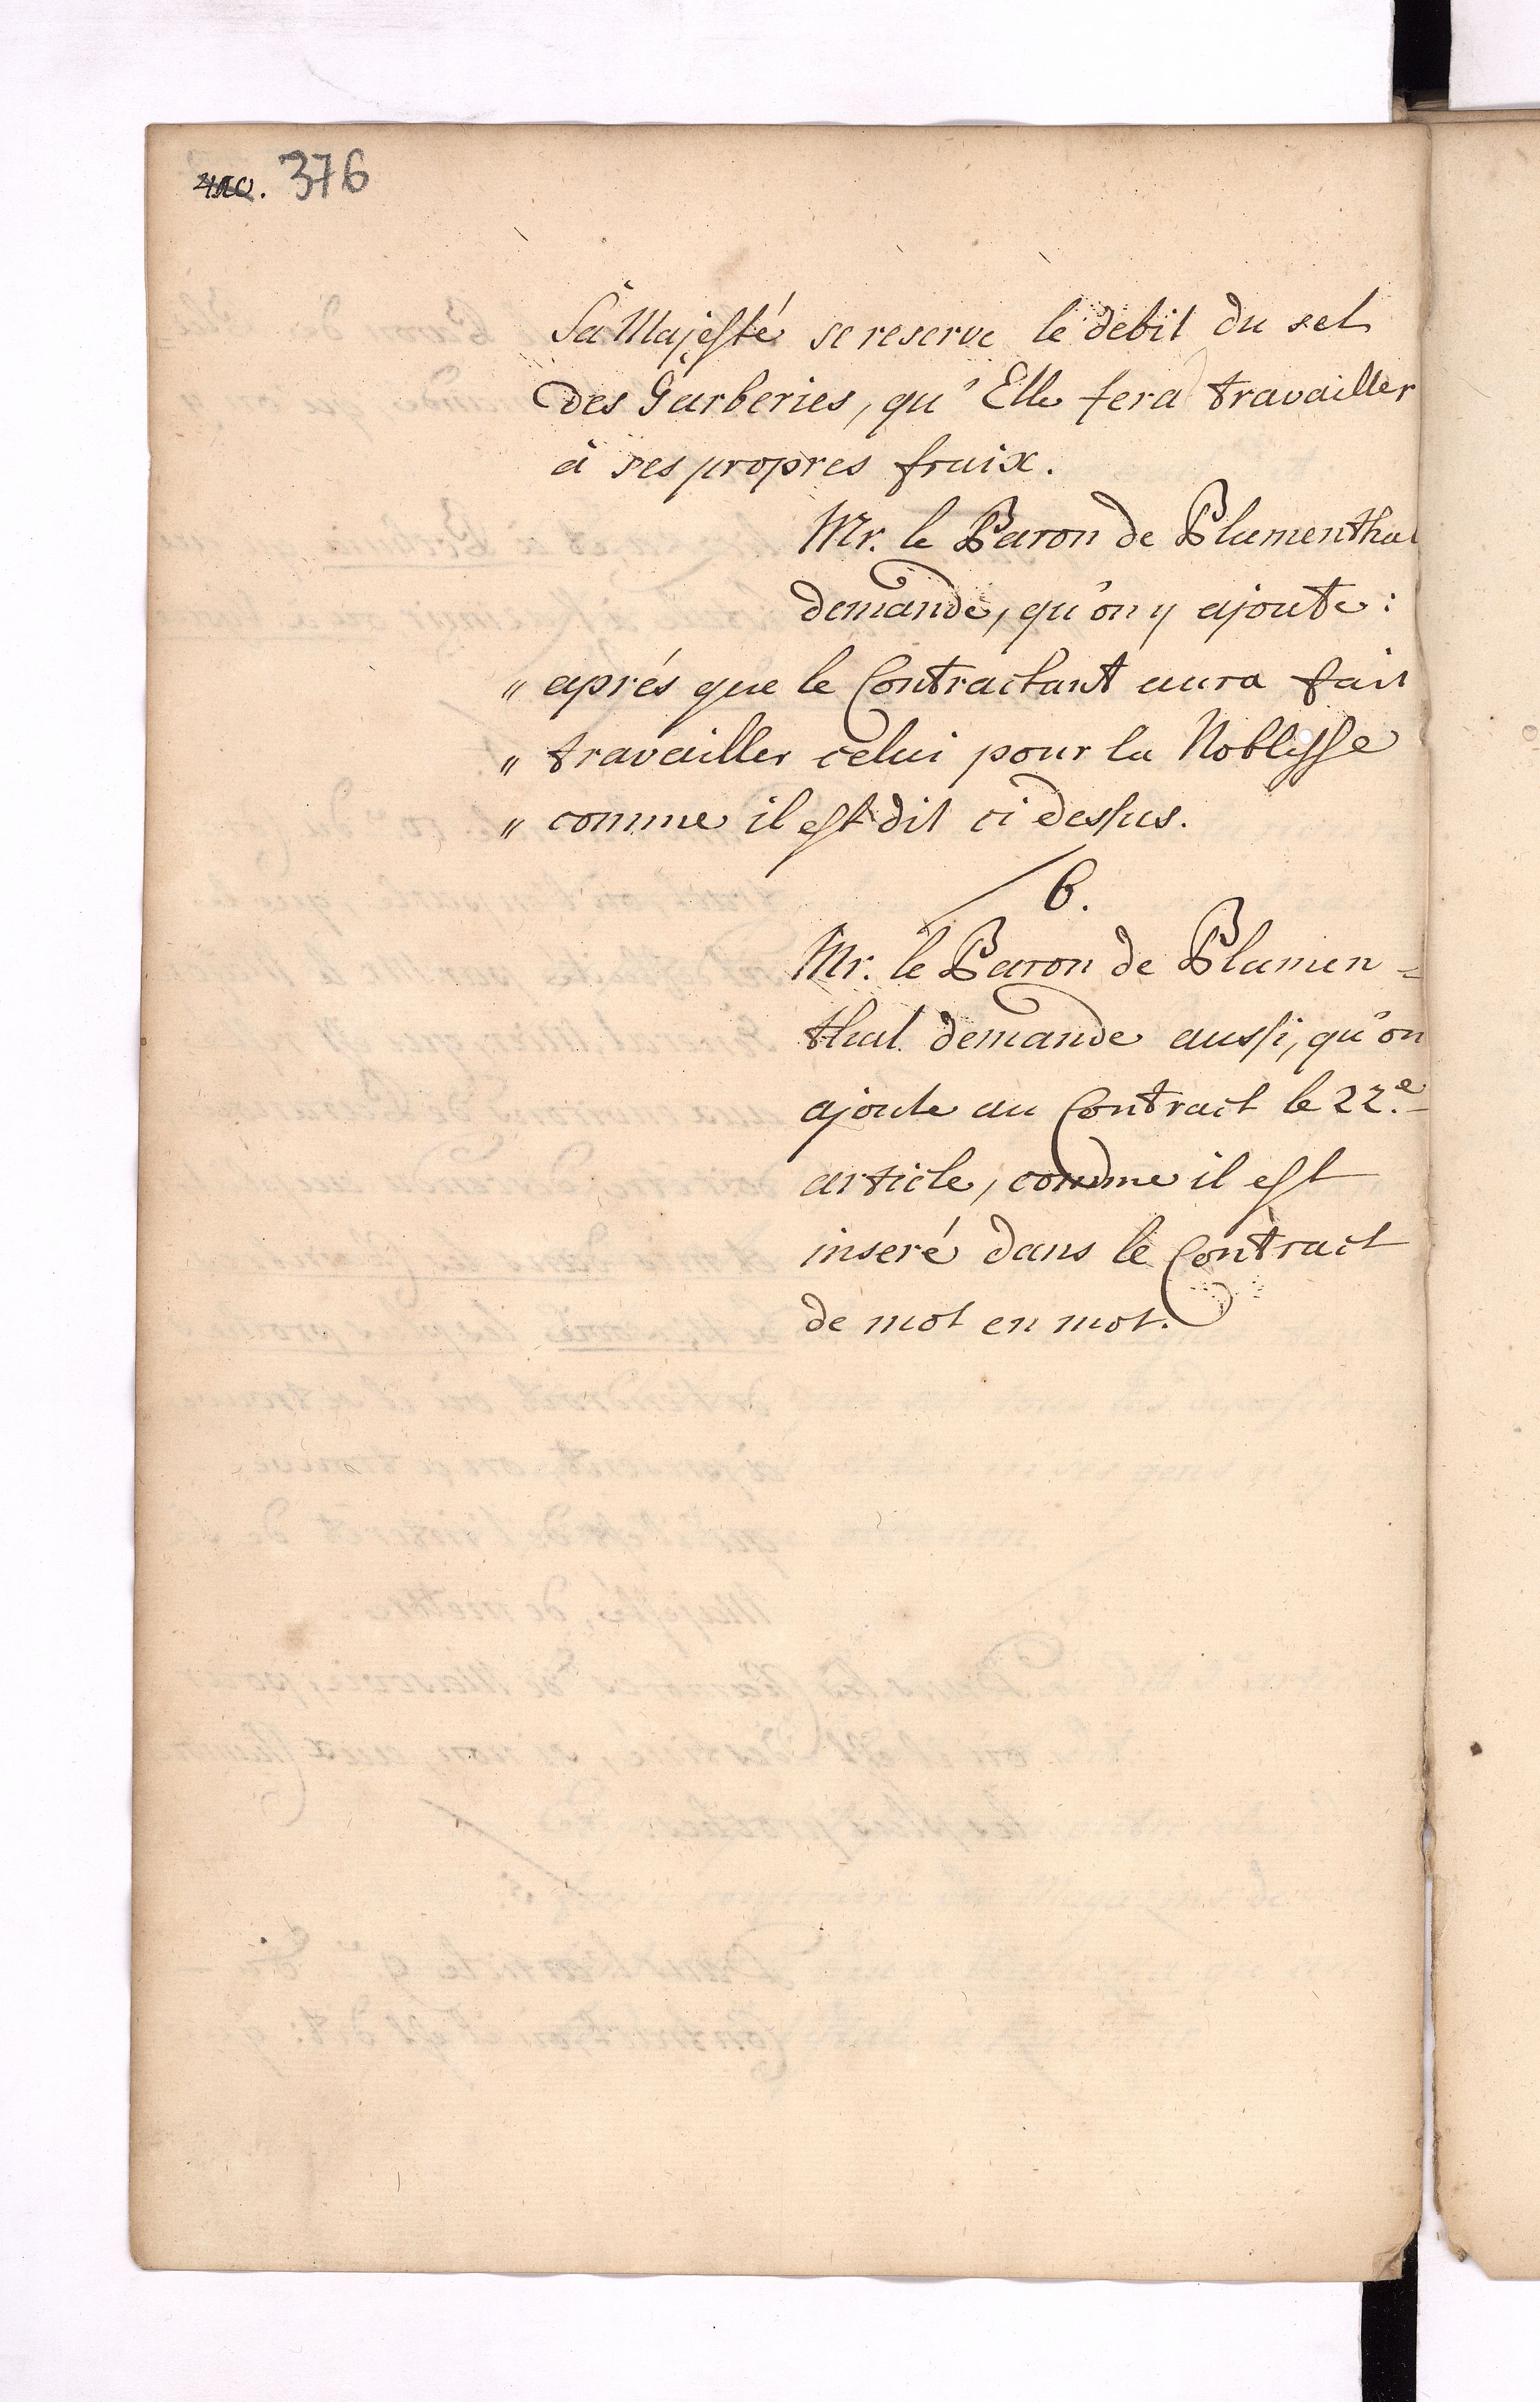 376
Sa Majesté se reserve le debit du sel
des Garberies, qu'Elle fera travailler
à ses propres fraix.
Mr. le Baron de Blumenthal
demande, qu'on y ajoute:
" aprés que le Contractant aura fait
" travailler celui pour la Noblesse
" comme il est dit ci dessus.
6.
Mr. le Baron de Blumen=
thal demande aussi, qu'on
ajoute au Contract le 22.e
article, comme il est
inseré dans le Contract
de mot en mot.